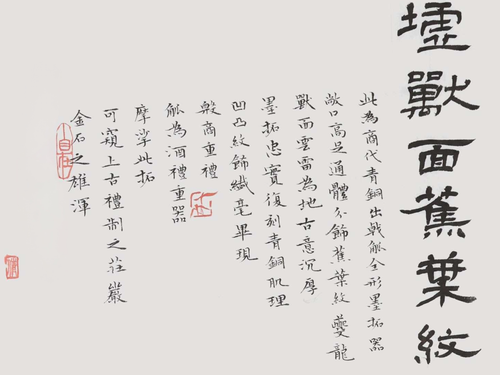 墟獸面蕉葉紋
此為商代青銅出戟觚全形墨拓器
敞口高足通體分飾蕉葉紋夔龍
獸面雲雷為地古意沉厚
墨拓忠實復刻青銅肌理
凹凸紋飾纖毫畢現
殷商重禮
觚為酒禮重器
摩挲此拓
可窺上古禮制之莊嚴
金石之雄渾